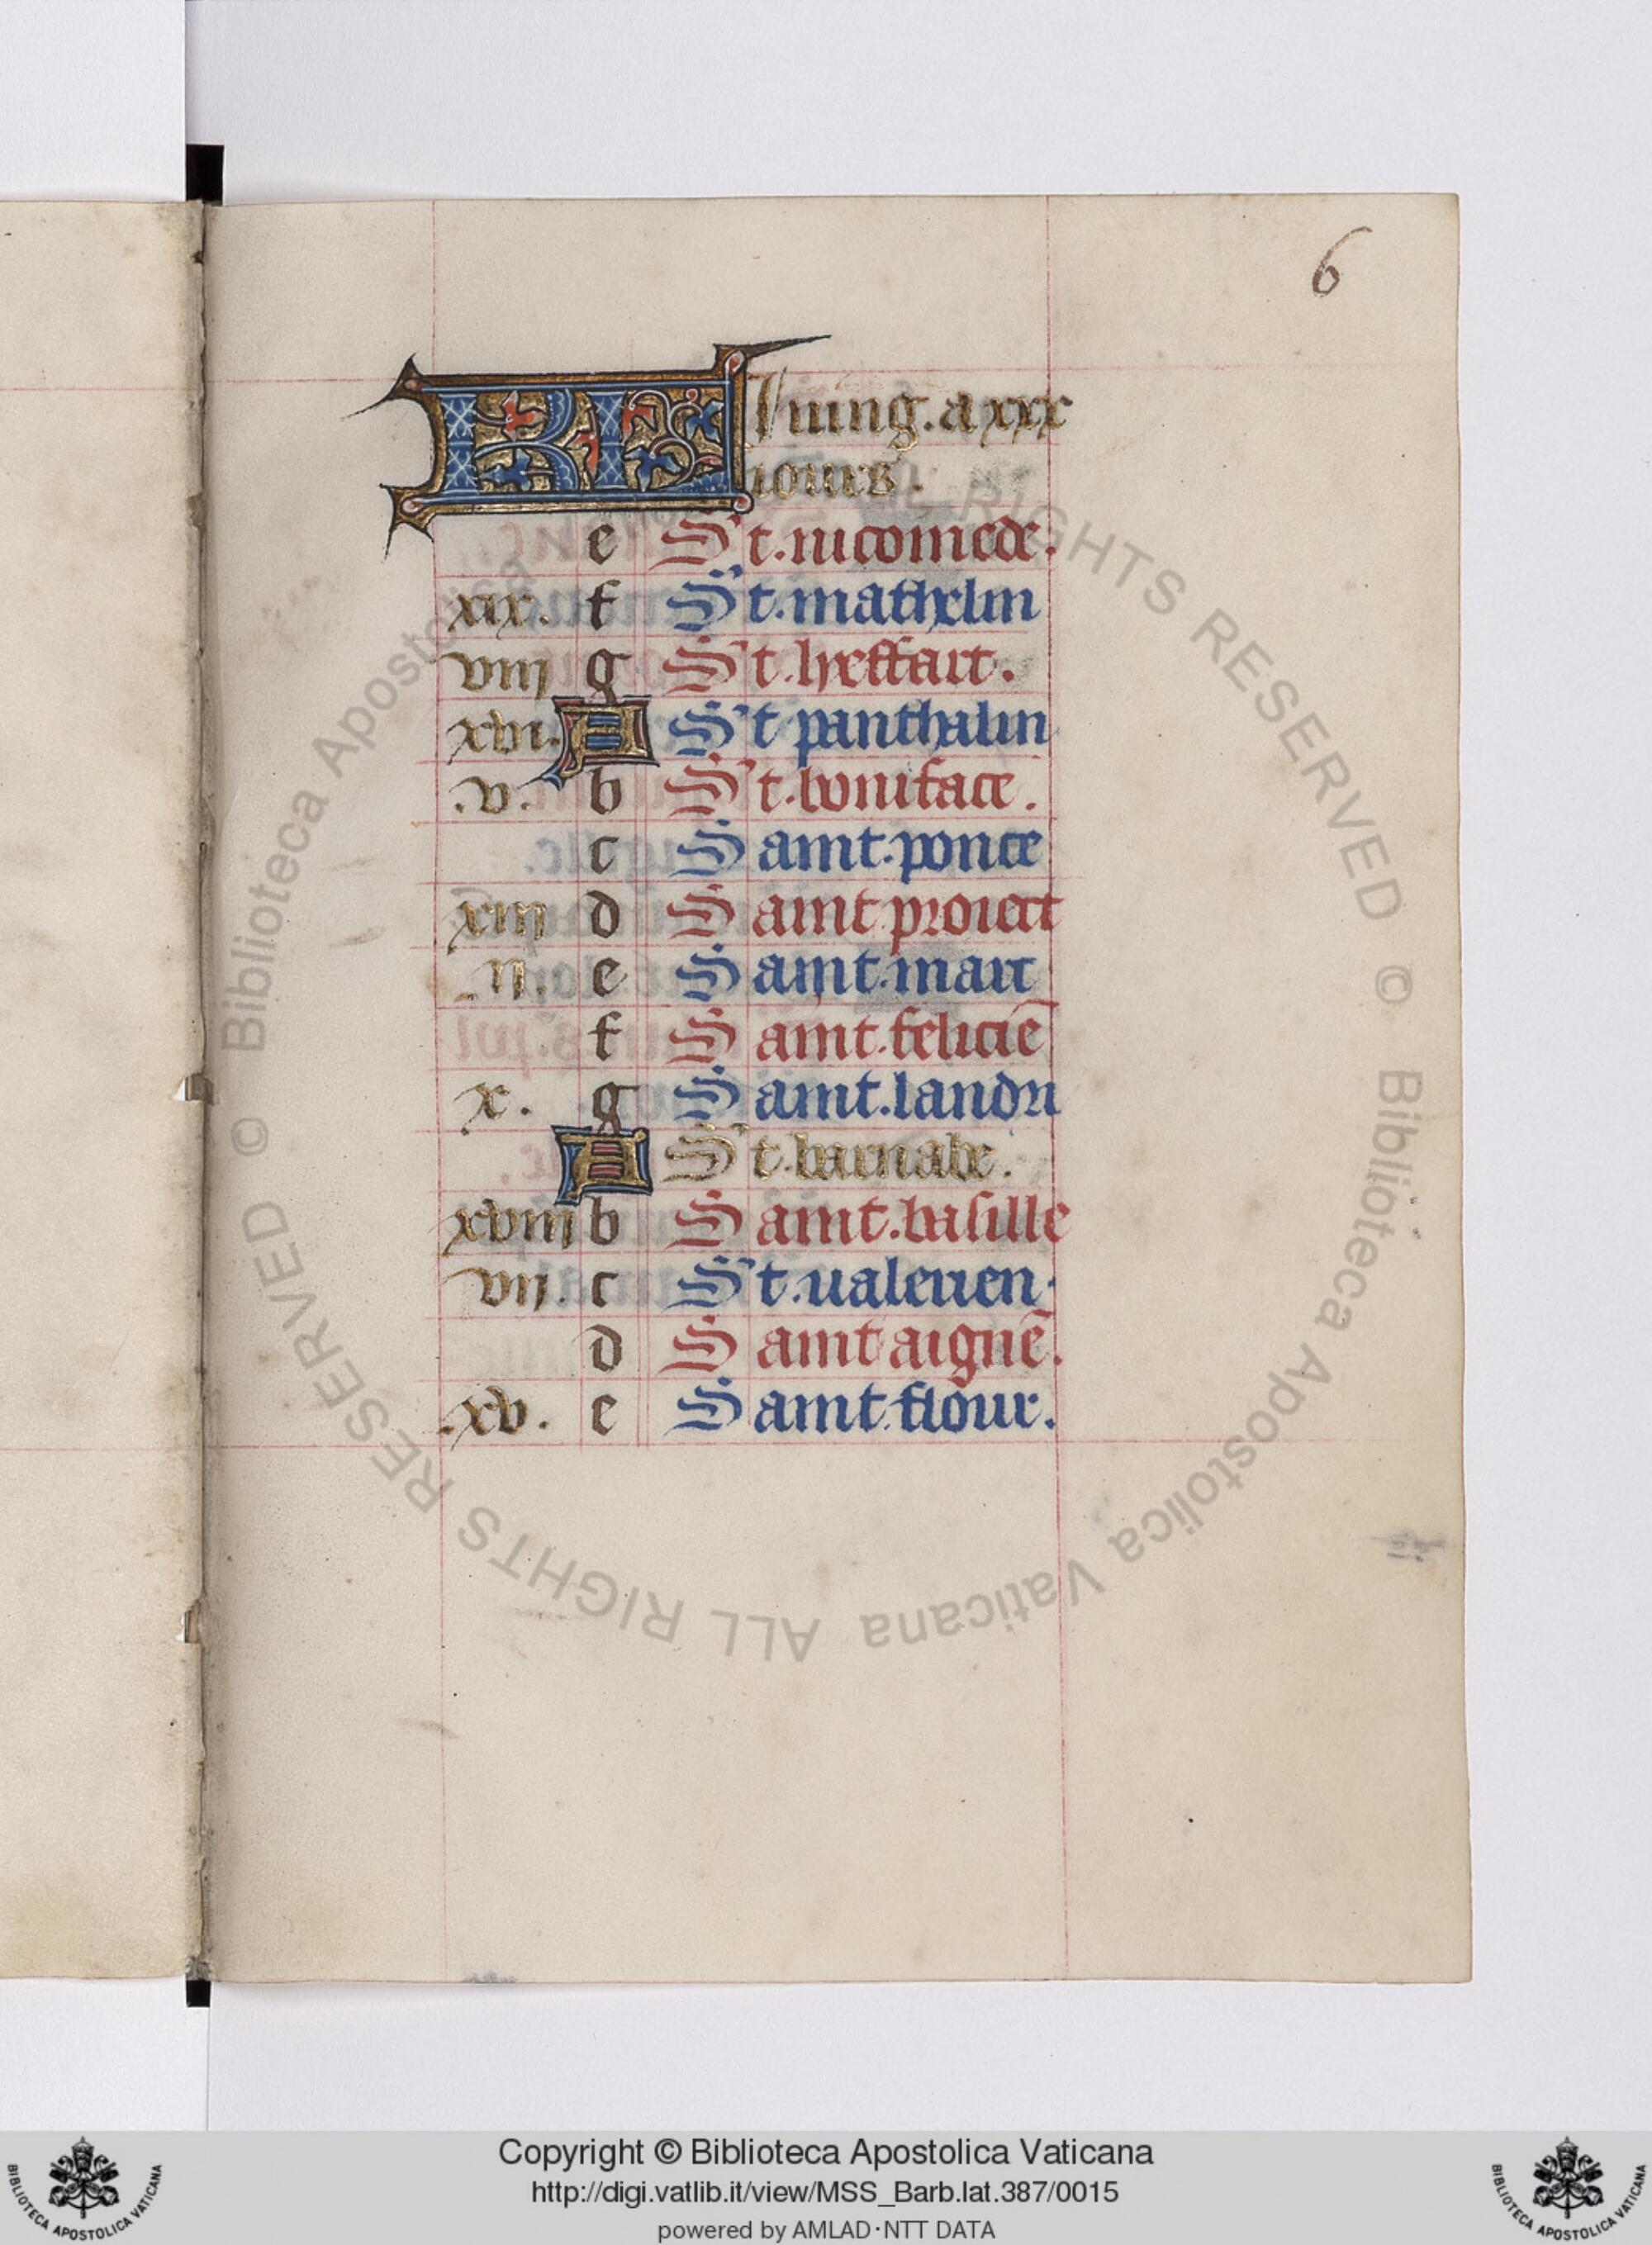 6
KL Iuing. a xxx
iours.
e St. nicomede.
xix. f St. mathelin
viii g St. heffart.
xvi. A St panthalin
.v. b St. boniface.
c Saint. ponce
xiii d Saint proiect
.ii. e Saint. mart
f Saint. feliciē
x. g Saint. landri
A St. barnabe.
xviii b Saint. basille
vii. c St. valerien.
d Saint aignē.
.xv. e Saint. flour.
© Biblioteca Apostolica Vaticana ALL RIGHTS RESERVED © Biblioteca Apostolica Vaticana ALL RIGHTS RESERVED
Copyright © Biblioteca Apostolica Vaticana
http://digi.vatlib.it/view/MSS_Barb.lat.387/0015
powered by AMLAD·NTT DATA
BIBLIOTECA APOSTOLICA VATICANA
BIBLIOTECA APOSTOLICA VATICANA